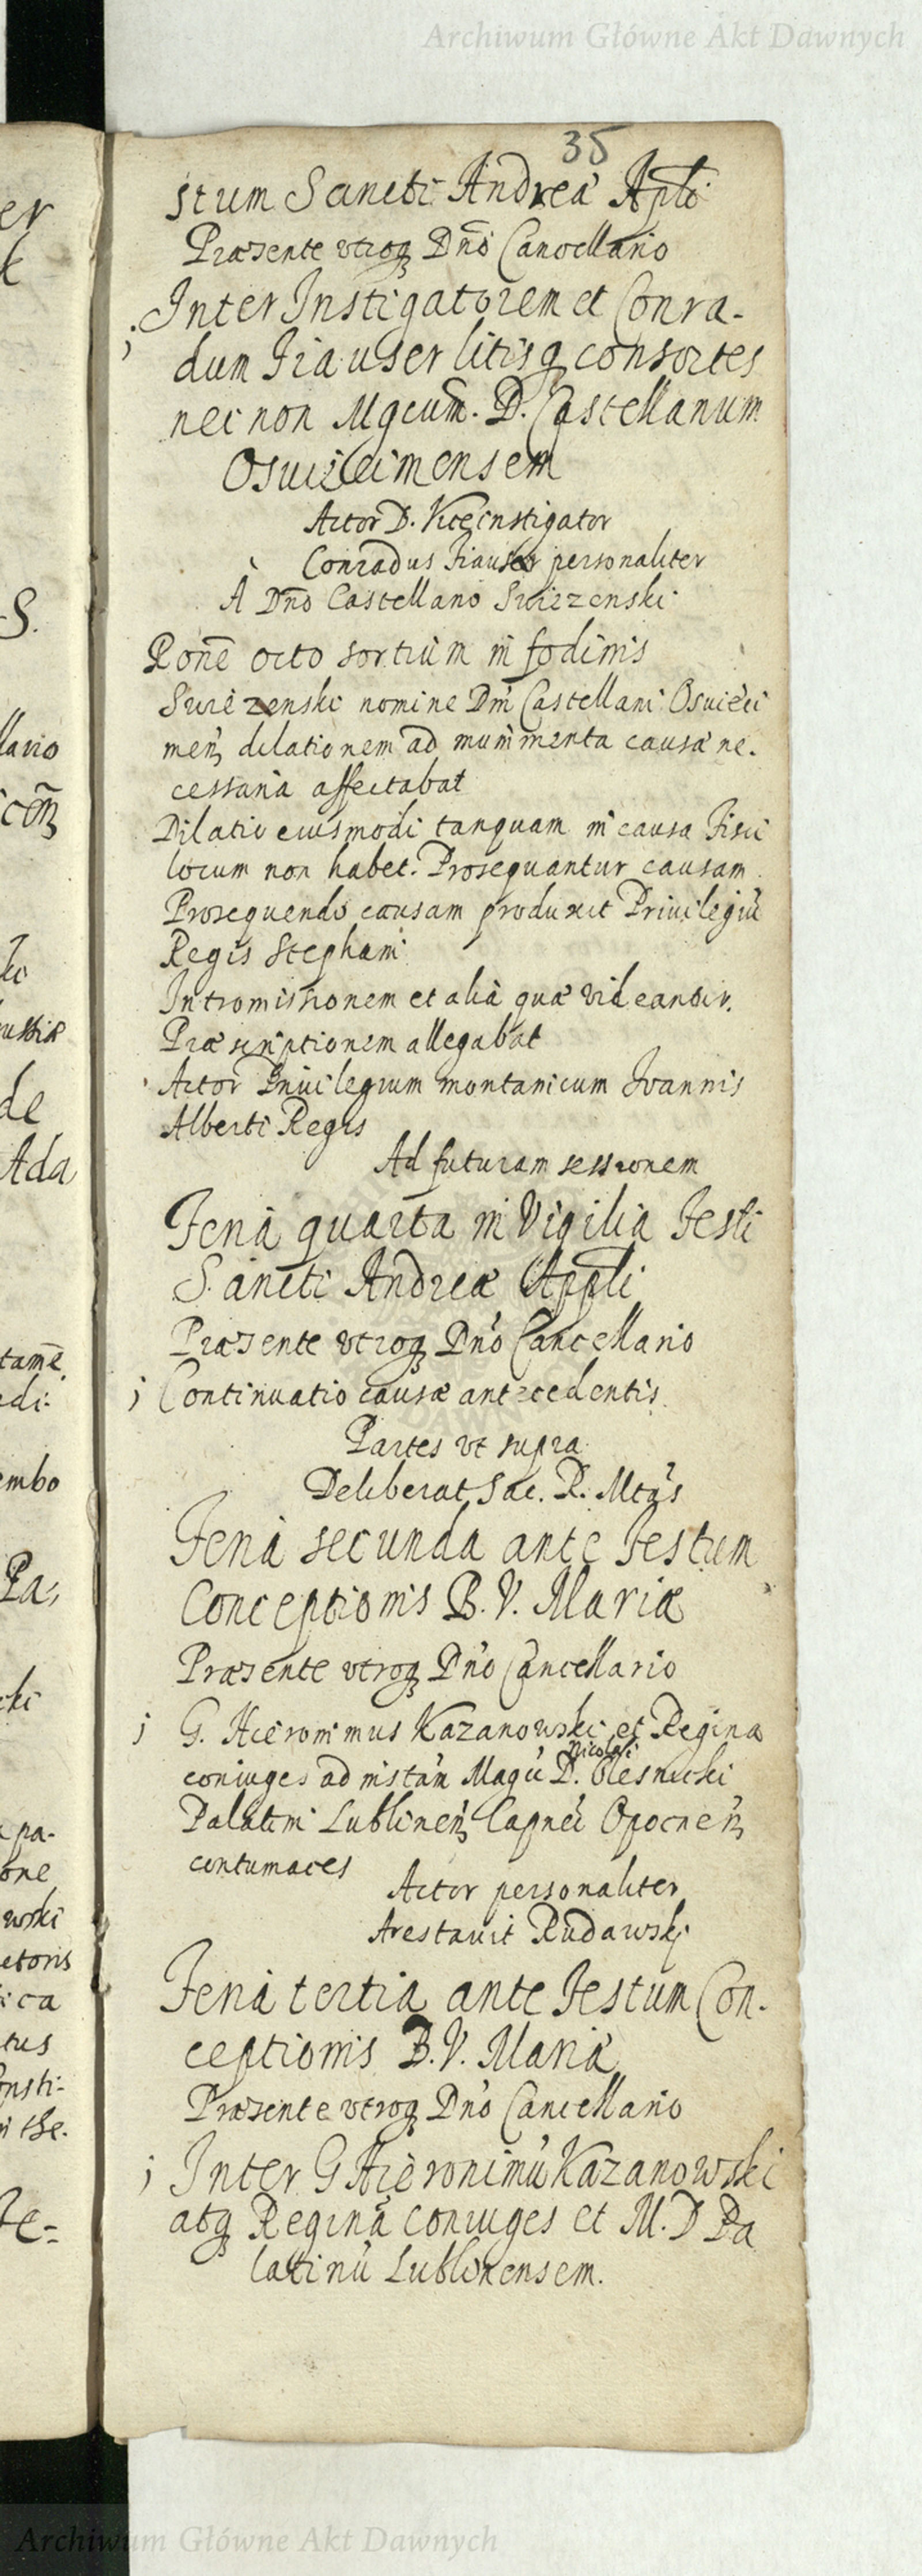 Archiwum Główne Akt Dawnych
35
stum Sancti Andreæ Apłi
Præsente vtroq Dno Cancellario
j Inter Instigatorem et Conra-
dum Fiauser litisq consortes
nec non Mgcum. D. Castellanum
Osuiecimensem
Actor D. Viceinstigator
Conradus Fiauser personaliter
À Dno Castellano Swiezenski
Rone octo sortium in fodinis
Swiezenski nomine Dni Castellani Osuieci
men dilationem ad munimenta causæ ne.
cessaria affectabat
Dilatio eiusmodi tanquam in causa Fisci
locum non habet. Prosequantur causam
Prosequendo causam produxit Priuilegiu
Regis Stephani
Intromissionem et alia quæ videantur.
Præscriptionem allegabat
Actor Priuilegium montanicum Ioannis
Alberti Regis
Ad futuram sessionem
Feria quarta in Vigilia Festi
Sancti Andreæ Appli
Præsente vtroq Dno Cancellario
j Continuatio causæ antecedentis
Partes vt supra
Deliberat Sac. R. Mtas
Feria secunda ante Festum
Conceptionis B. V. Mariæ
Præsente vtroq Dno Cancellario
j G. Hieronimus Kazanowski et Regina
coniuges ad instan Magci D. Nicolai Olesnicki
Palatini Lublinen Capnei Opocnen
contumaces
Actor personaliter
Arestauit Rudawski
Feria tertia ante Festum Con-
ceptionis B. V. Mariæ
Præsente vtroq Dno Cancellario
j Inter G Hieronimu Kazanowski
atq Regina coniuges et M. D Pa
latinu Lublinensem.
Archiwum Główne Akt Dawnych